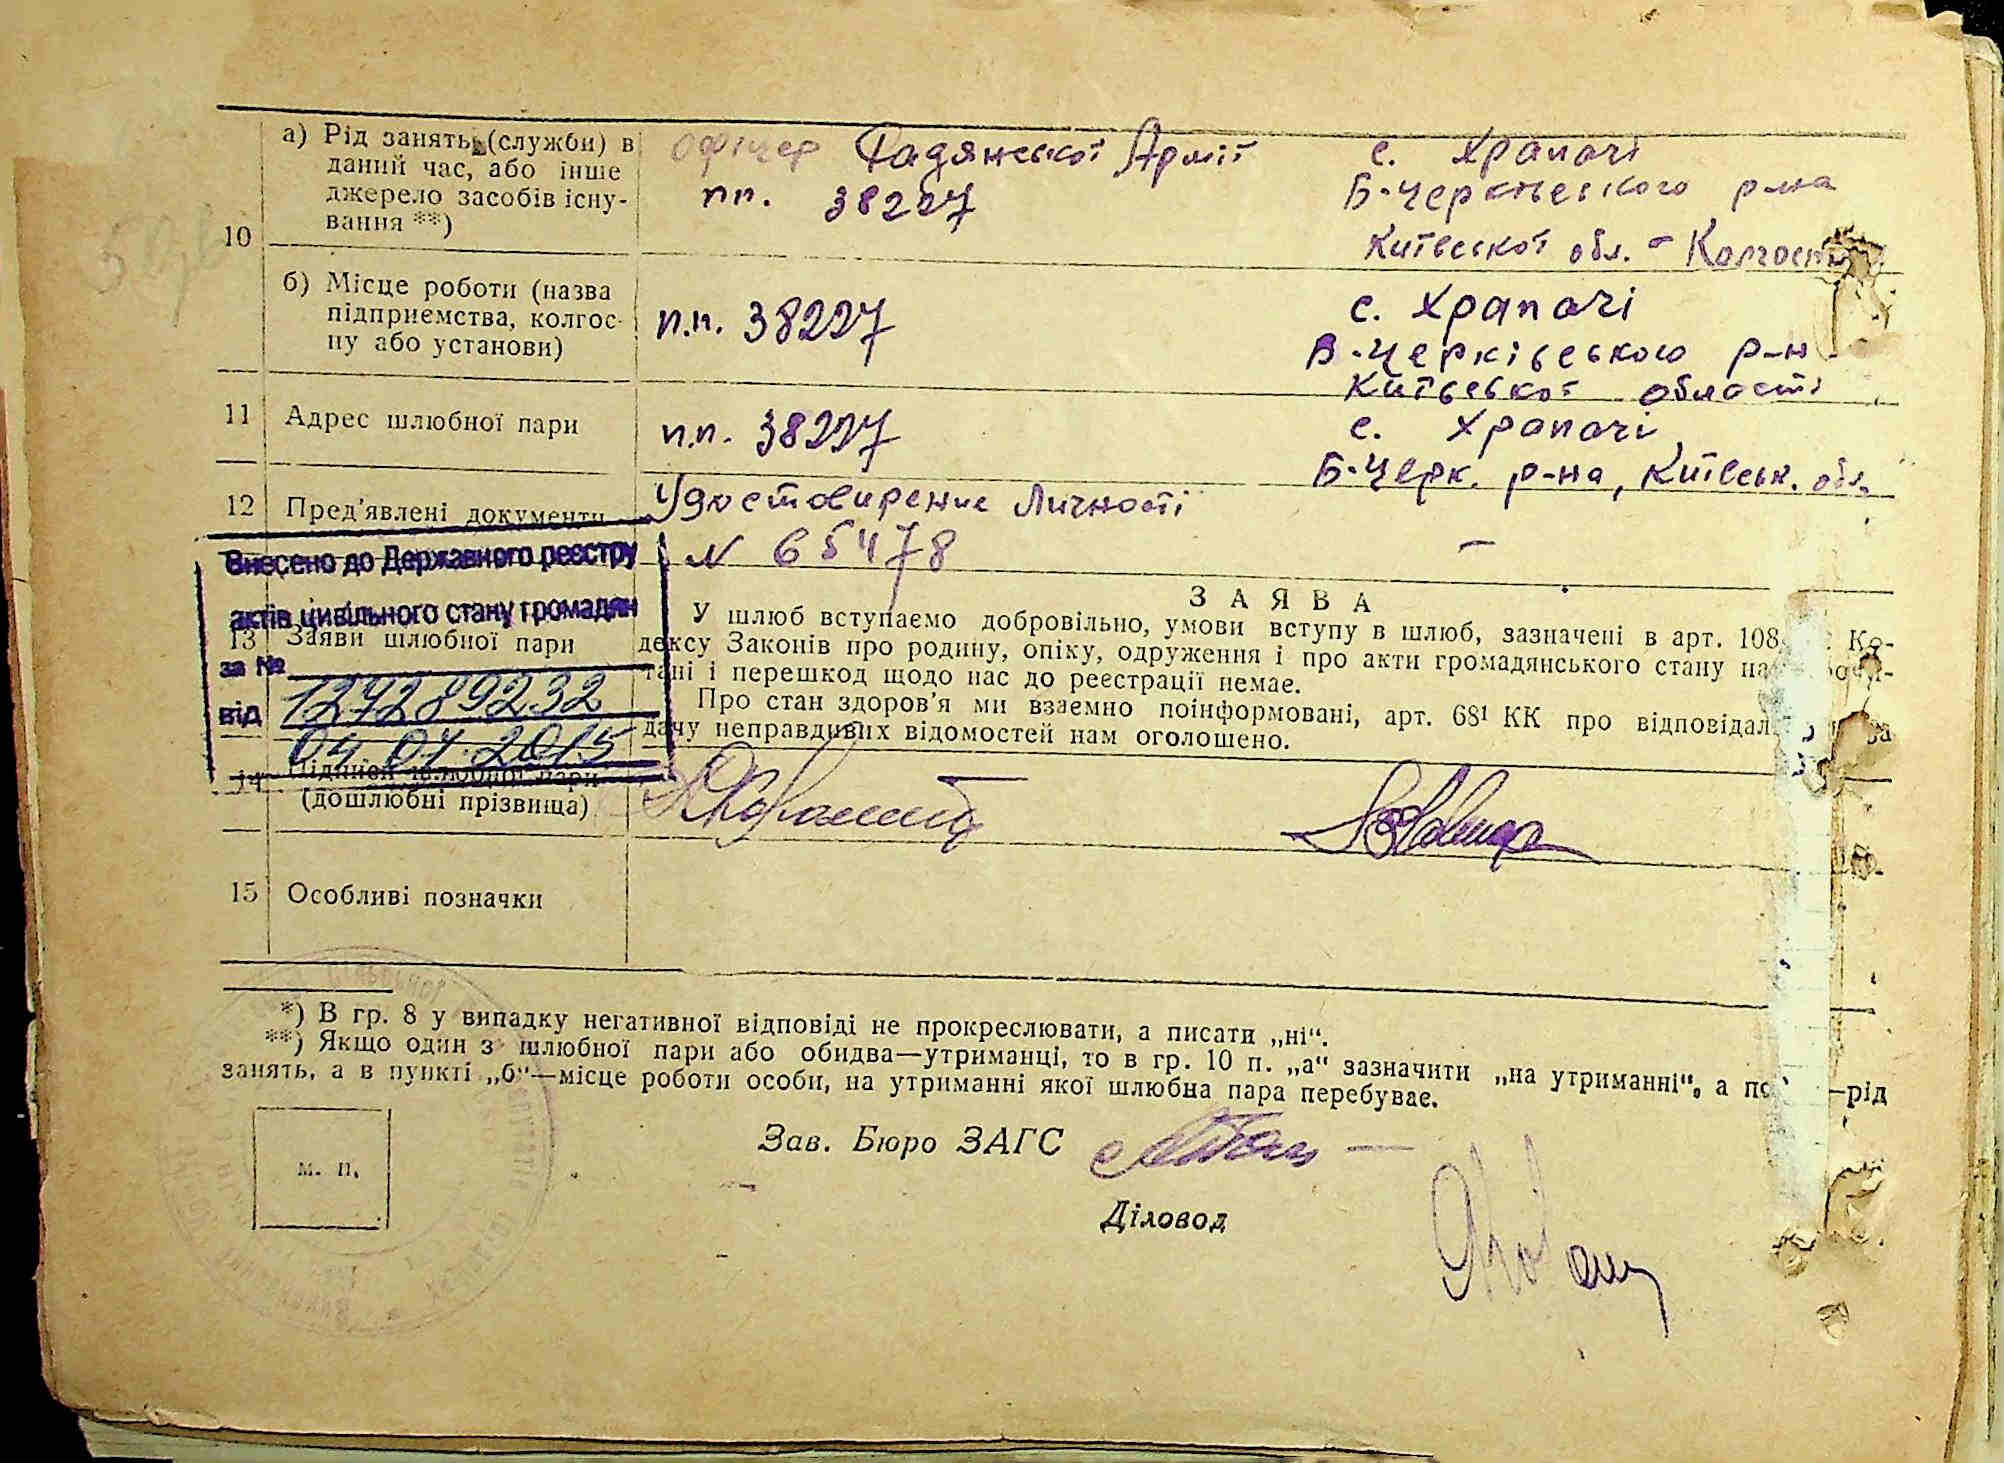 10
а) Рід занять (служби) в
даний час, або інше
джерело засобів існу-
вання **)
офіцер Радянської Армії
пп. 38227
с. Храпачі
Б-Черківського р-на
Київської обл. - Колгосп
б) Місце роботи (назва
підприємства, колгос-
пу або установи)
п.п. 38227
с. Храпачі
Б-Черківського р-н
Київської області
11
Адрес шлюбної пари
п.п. 38227
с. Храпачі,
Б-Черк. р-на, Київськ. обл.
12
Пред'явлені документи
Удостовирение Личності
N 65478
-
Внесено до Державного реєстру
актів цивільного стану громадян
за №
127289232
від
04.04.2015
13
Заяви шлюбної пари
ЗАЯВА
У шлюб вступаємо добровільно, умови вступу в шлюб, зазначені в арт. 108 Ко-
дексу Законів про родину, опіку, одруження і про акти громадянського стану на
тані і перешкод щодо нас до реєстрації немає.
Про стан здоров'я ми взаємно поінформовані, арт. 68¹ КК про відповідал за
дачу неправдивих відомостей нам оголошено.
14
Підписи шлюбної пари
(дошлюбні прізвища)
15
Особливі позначки
*) В гр. 8 у випадку негативної відповіді не прокреслювати, а писати „ні“.
**) Якщо один з шлюбної пари або обидва—утриманці, то в гр. 10 п. „а“ зазначити „на утриманні“, а по —рід
занять, а в пункті „б“—місце роботи особи, на утриманні якої шлюбна пара перебуває.
м. п.
Зав. Бюро ЗАГС
Діловод